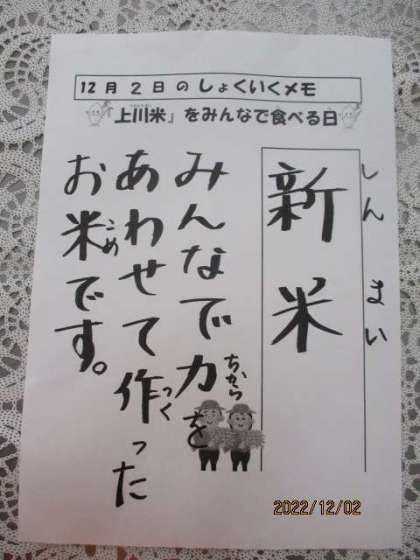 12月2日のしょくいくメモ
『上川米』をみんなで食べる日
しん まい
新米
みんなで力を
ちから
あわせて作った
つく
お米です。
こめ
2022/12/02